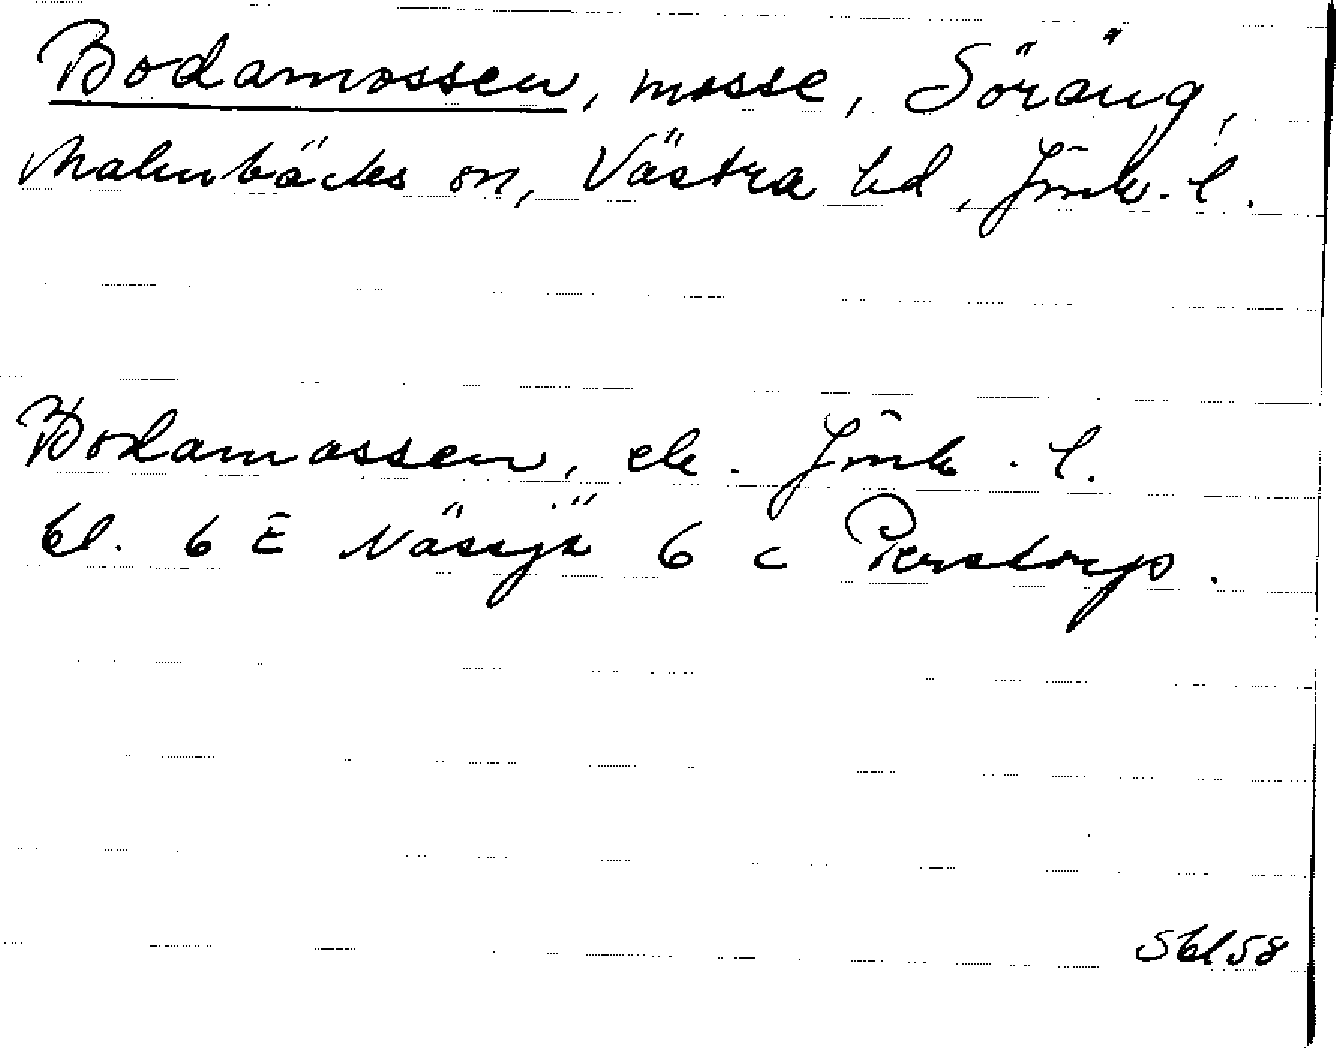 Bodamossen, mosse, Söräng,
Malmbäcks sn, Västra hd, Jönk. l.
Bodamossen, ek. Jönk. l.
bl. 6 E Nässjö 6 c Perstorp.
Sbl58